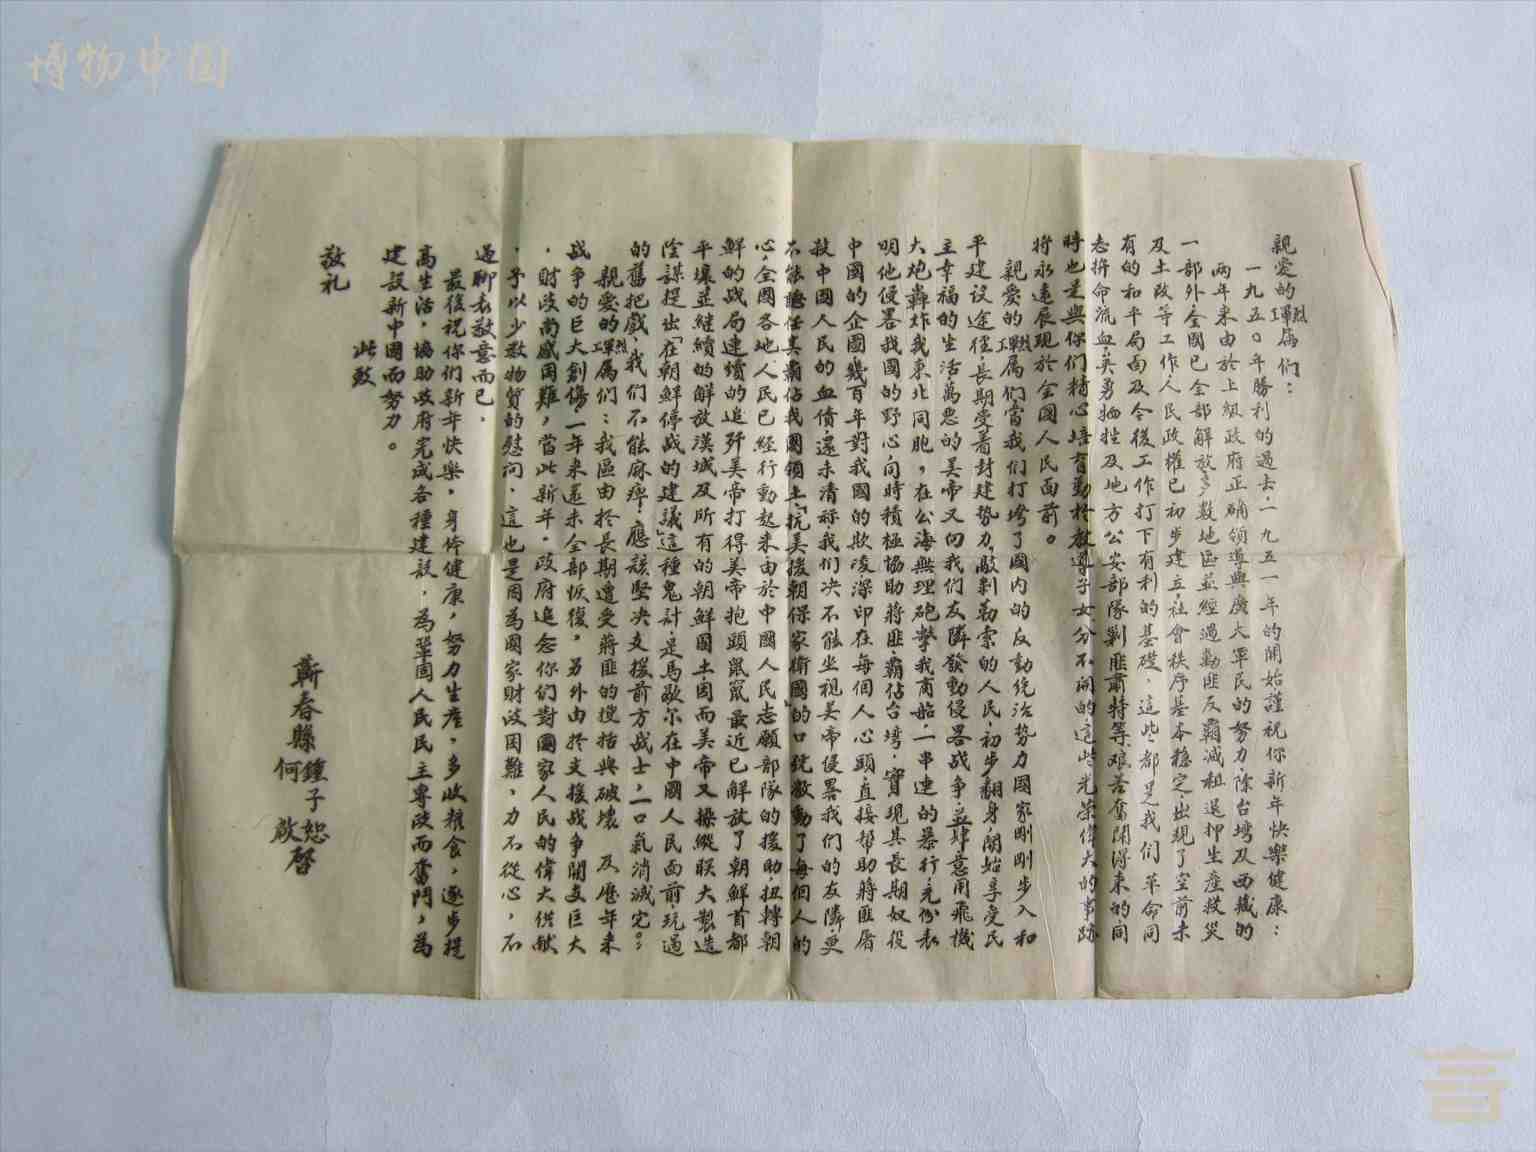 博物中国
親爱的烈軍工属們：
一九五〇年勝利的過去，一九五一年的開始謹祝你新年快樂健康：
两年来由於上級政府正确領導與廣大軍民的努力，除台灣及西藏的
一部外，全國已全部解放，多数地区並經過勦匪反霸減租退押生産救災
及土改等工作，人民政權已初步建立，社會秩序基本穩定，出現了空前未
有的和平局面及今後工作打下有利的基礎，這些都是我们革命同
志拚命流血英勇牺牲及地方公安部隊剿匪肅特等艰苦奮闘得来的同
時也是與你们精心培育勤於教導子女分不開的，這些光荣偉大的事跡
将永遠展現於全國人民面前。
親爱的烈軍工属們，當我们打垮了國内的反動統治势力國家剛剛步入和
平建设途徑，長期受着封建势力敲剥勒索的人民，初步翻身，開始享受民
主幸福的生活，萬悪的美帝又向我们友隣發動侵畧战争，並肆意用飛機
大炮轟炸我東北同胞，在公海無理砲擊我商船，一串連的暴行，充份表
明他侵畧我國的野心，向時積極協助蔣匪，霸佔台灣，實現其長期奴役
中國的企圖，幾百年對我國的欺凌深印在每個人心頭，直接帮助蔣匪屠
殺中國人民的血債還未清称，我们决不能坐視美帝侵畧我们的友隣，更
不能聽任其霸佔我國領土「抗美援朝保家衛國」的口號激動了每個人的
心，全國各地人民已經行動起来，由於中國人民志願部隊的援助，扭轉朝
鮮的战局連續的追歼美帝打得美帝抱頭鼠竄最近已解放了朝鮮首都
平壤並継續的解放漢城及所有的朝鮮國土，因而美帝又操縱联大製造
陰謀提出「在朝鮮停战的建議」這種鬼計，是馬歇尔在中國人民面前玩過
的舊把戲，我们不能麻痺！應該堅决支援前方战士，一口氣消滅完。
親爱的烈軍工属們：我區由於長期遭受蔣匪的搜括與破壞及歷年来
战争的巨大創傷，一年来還未全部恢復，另外由於支援战争開支巨大
，财政尚感困難，當此新年，政府追念你们對國家人民的偉大供献
，予以少数物質的慰问，這也是因為國家财政困難，力不從心，不
過聊表敬意而已，
最後祝你们新年快樂，身体健康，努力生産，多收粮食，逐步提
高生活，協助政府完成各種建設，為鞏固人民民主專政而奮鬥，為
建設新中國而努力。
此致
敬礼
蘄春縣鍾子恕
何
啟
啓